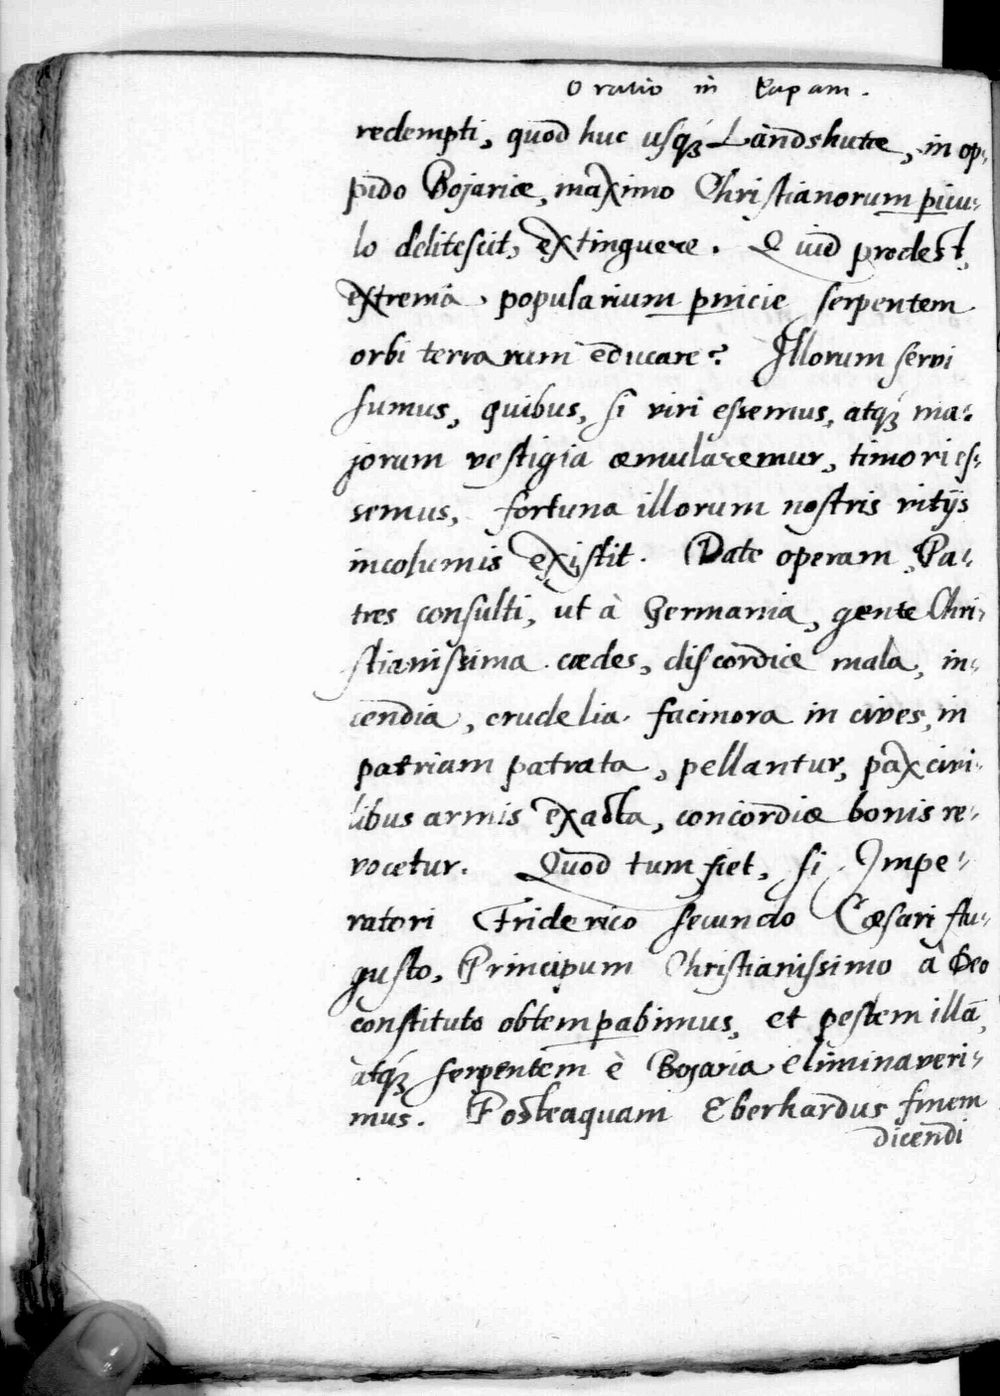 Oratio in Papam.
redempti, quod huc usq́ꝫ Landshutæ, in op-
pido Bojariæ, maximo Christianorum picu-
lo delitescit, extinguere. Quid prodest,
extrema popularium pnicie serpentem
orbi terrarum educare? Illorum servi
sumus, quibus, si viri essemus, atq́ꝫ ma-
jorum vestigia æmularemur, timori es-
semus, fortuna illorum nostris vitijs
incolumis existit. Date operam, Pa-
tres consulti, ut à Germania, gente Chri-
stianissima cædes, discordiæ mala, in-
cendia, crudelia facinora in cives, in
patriam patrata, pellantur, pax civi-
libus armis exacta, concordiæ bonis re-
vocetur. Quod tum fiet, si Impe-
ratori Friderico secundo Cæsari Au-
gusto, Principum Christianissimo à Deo
constituto obtempabimus, et pestem illā,
atq́ꝫ serpentem è Bojaria eliminaveri-
mus. Posteaquam Eberhardus finem
dicendi